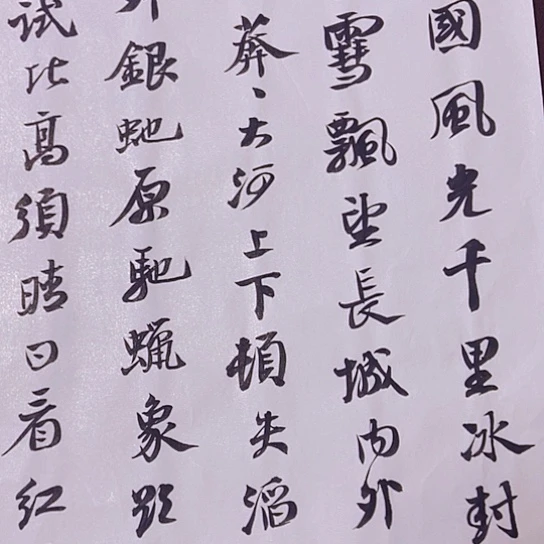 國風光千里冰封
雪飄望長城内外
莽、大河上下頓失滔
銀蛇原馳蠟象
試比高須晴日看紅